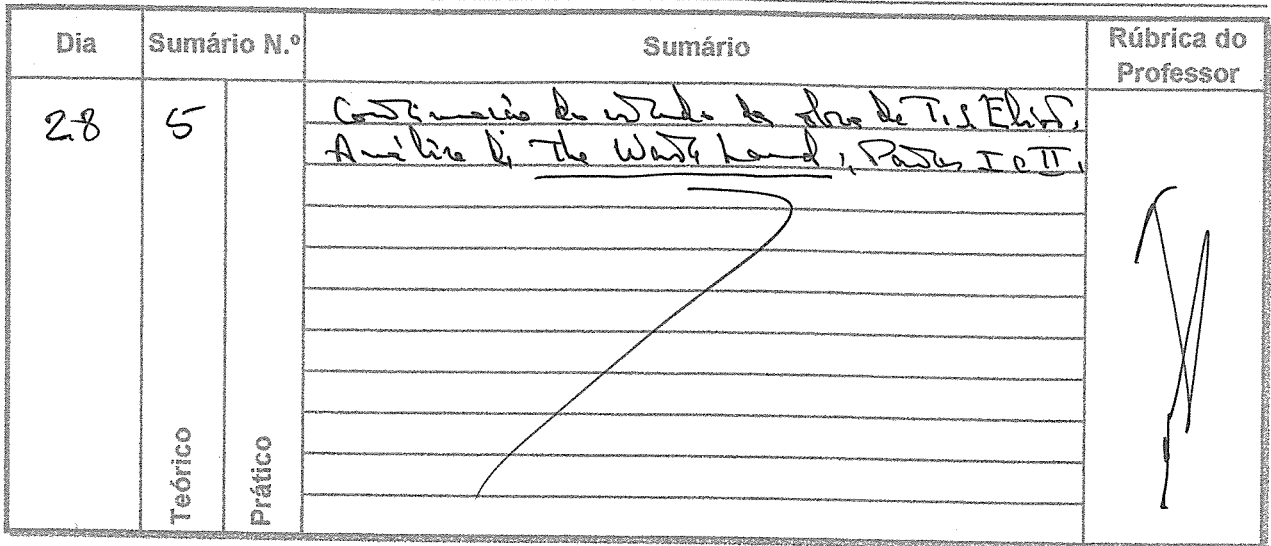 Dia Sumário N.º Sumário Rúbrica do Professor
28 5
Continuação do estudo da obra de T. S. Eliot.
Análise de The Waste Land, Partes I e II.
Teórico
Prático